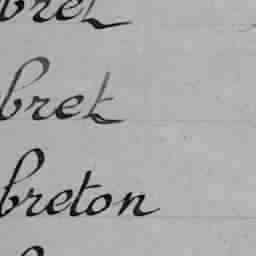 bret
bret
breton